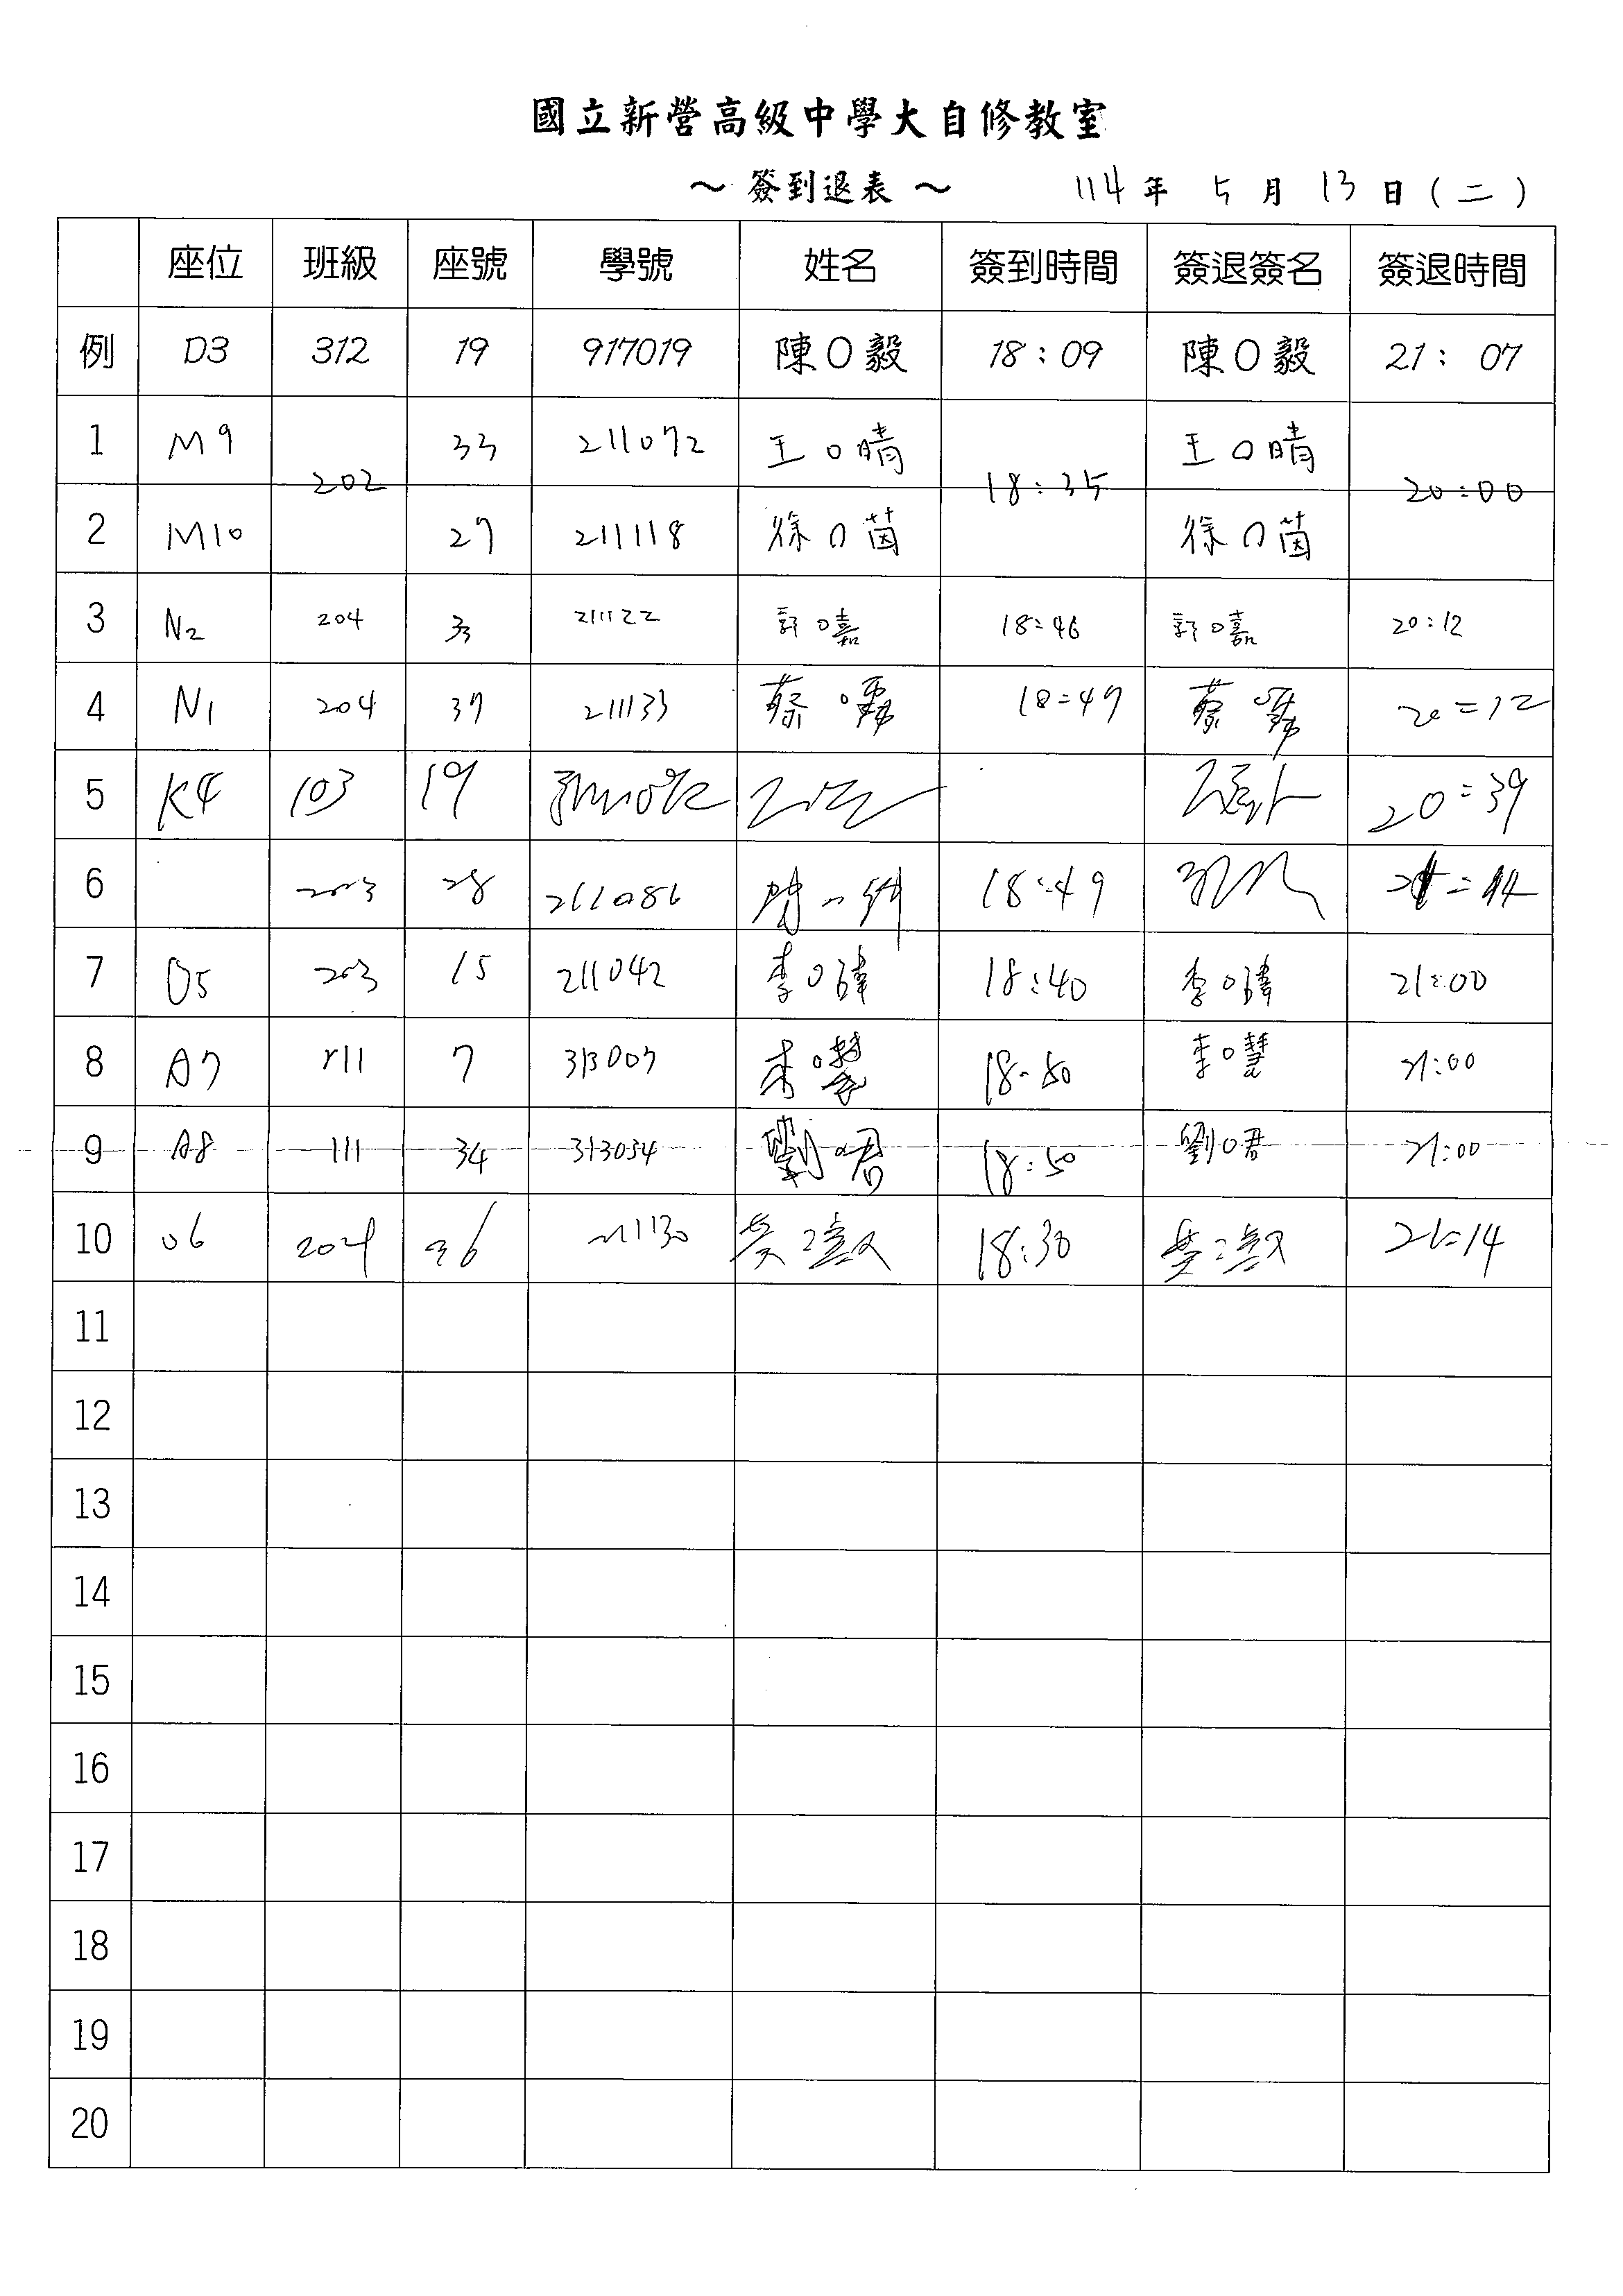 國立新營高級中學大自修教室
～ 簽到退表 ～ 114 年 5 月 13 日 ( 二 )
座位 班級 座號 學號 姓名 簽到時間 簽退簽名 簽退時間
例 D3 312 19 917019 陳O毅 18:09 陳O毅 21: 07
1 M9 33 211072 王O晴 王O晴
202 18:35 20:00
2 M10 27 211118 徐O茵 徐O茵
3 N2 204 33 211122 郭O嘉 18:46 郭O嘉 20:12
4 N1 204 37 211133 蔡O 18:47 蔡O 20=12
5 K4 103 19 20=39
6 203 28 211086 18:49
7 O5 203 15 211042 李O瑋 18:40 李O瑋 21:00
8 A7 111 7 313007 李O慧 18:50 李O慧 21:00
9 A8 111 34 313034 劉O君 18:50 劉O君 21:00
10 O6 204 36 211130 18:30 21:14
11
12
13
14
15
16
17
18
19
20